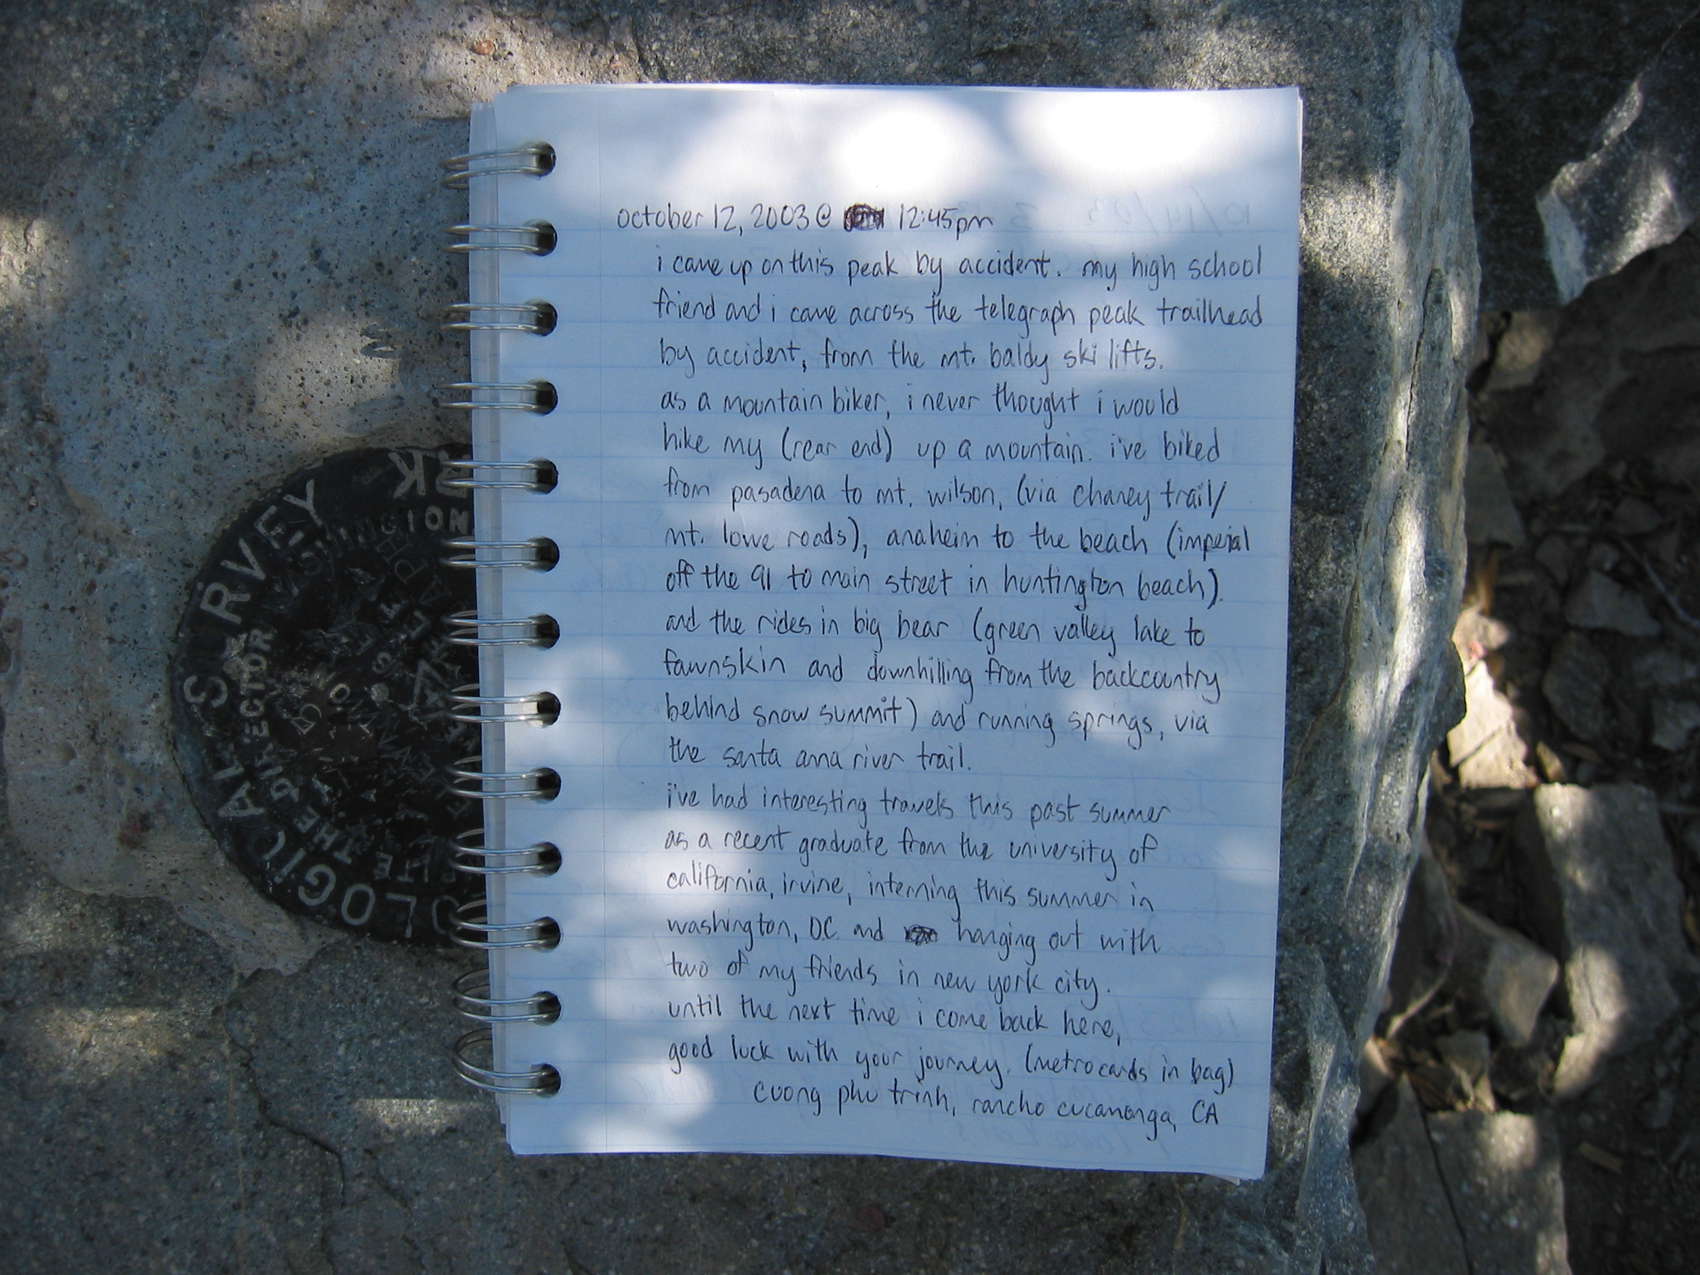 october 12, 2003 @ 12:45pm
i came up on this peak by accident. my high school
friend and i came across the telegraph peak trailhead
by accident, from the mt. baldy ski lifts.
as a mountain biker, i never thought i would
hike my (rear end) up a mountain. i've biked
from pasadena to mt. wilson, (via chaney trail/
mt. lowe roads), anaheim to the beach (imperial
off the 91 to main street in huntington beach).
and the rides in big bear (green valley lake to
fawnskin and downhilling from the backcountry
behind snow summit) and running springs, via
the santa anna river trail.
i've had interesting travels this past summer
as a recent graduate from the university of
california, irvine, interning this summer in
washington, DC and hanging out with
two of my friends in new york city.
until the next time i come back here,
good luck with your journey. (metrocards in bag)
cuong phu trinh, rancho cucamonga, CA
OLOGICAL SURVEY
THE DIRECTOR